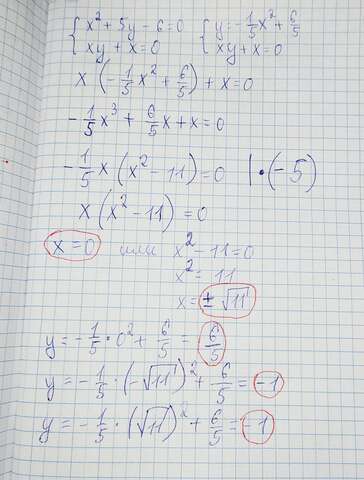 { x² + 5y - 6 = 0   { y = -1/5x² + 6/5
{ xy + x = 0   { xy + x = 0
x(-1/5x² + 6/5) + x = 0
-1/5x³ + 6/5x + x = 0
-1/5x(x² - 11) = 0 | · (-5)
x(x² - 11) = 0
x = 0 или x² - 11 = 0
x² = 11
x = ±√11
y = -1/5 · 0² + 6/5 = 6/5
y = -1/5 · (-√11)² + 6/5 = -1
y = -1/5 · (√11)² + 6/5 = -1